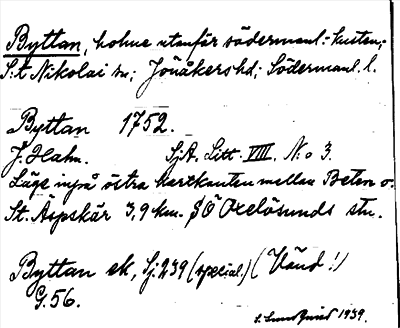 Byttan, holme utanför södermanl.-kusten;
S:t Nikolai sn; Jönåkers hd; Södermanl. l.
Byttan 1752.
J. Hahn. SjA. Litt. VIII. N:o 3.
Läge inpå östra kartkanten mellan Beten o.
St. Äspskär 3,9 km. SÖ Oxelösunds stn.
Byttan ek, Sj. 239 (special.) (Vänd!)
G. 56.
S. Lundquist 1939.